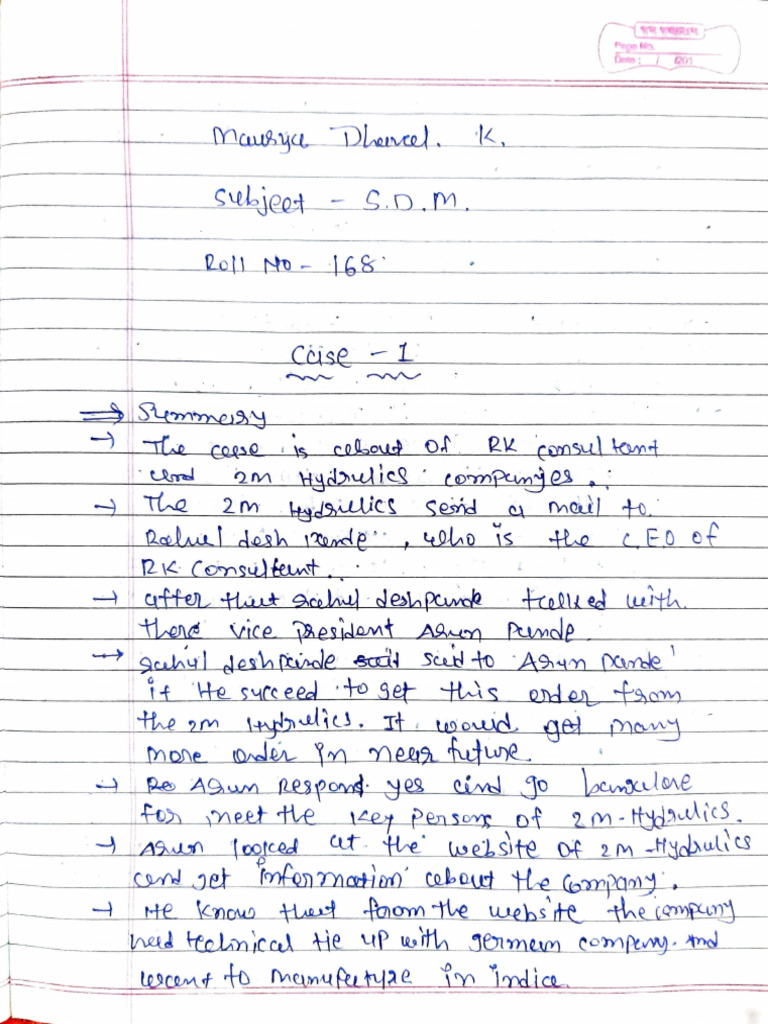 Page No.
Date : / /201
Maurya Dhaval. K.
Subject - S.D.M.
Roll No - 168
Case - 1
⇒ Summary
→ The case is about of RK consultant
and 2M Hydrulics companyes.
→ The 2M Hydrulics send a mail to
Rahul deshpande, who is the C.E.O of
RK Consultant.
→ after that rahul deshpande talked with
there vice president Arun Pande.
→ rahul deshpande said to Arun pande
if He succeed to get this order from
the 2M Hydrulics. It would get many
more order in near future.
→ Arun Respond yes and go bangalore
for meet the key persons of 2M-Hydrulics.
→ Arun looked at the website of 2M-Hydrulics
and get information about the company.
→ He know that from the website the company
had technical tie up with german company. and
want to manufacture in india.